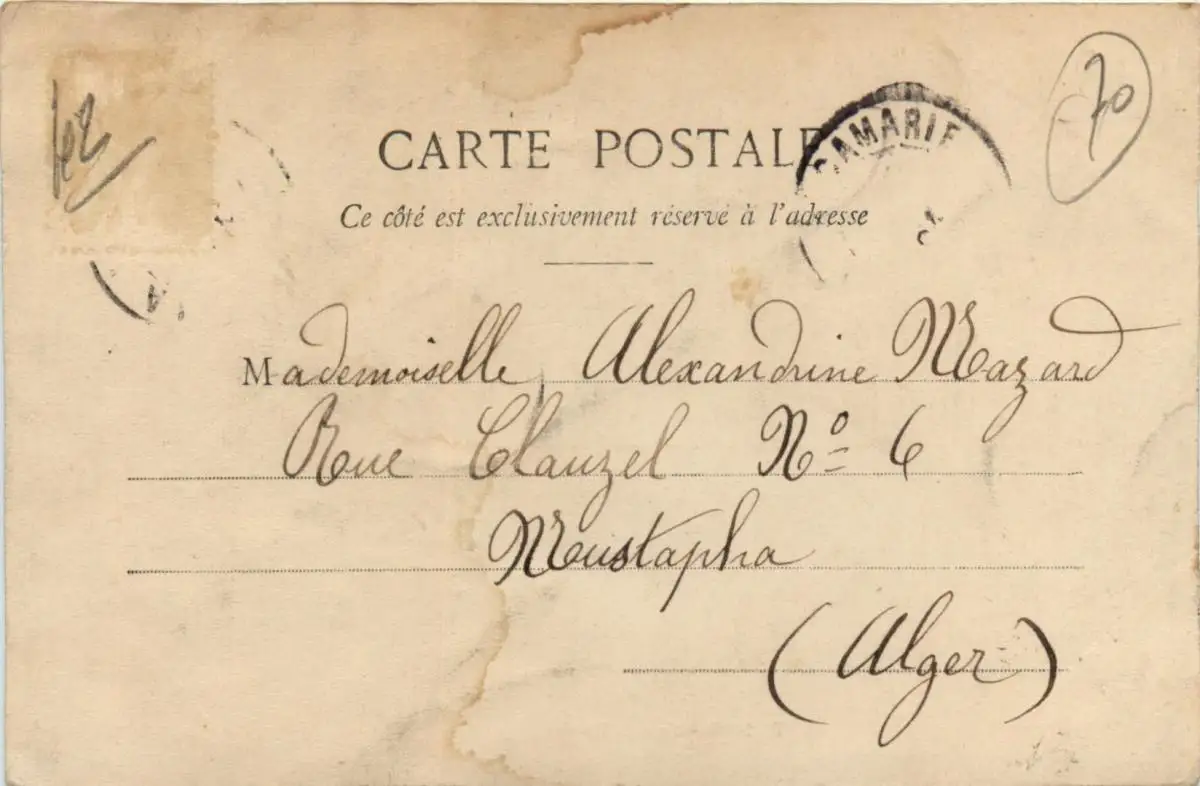 70
CARTE POSTALE
AMARIE
Ce côté est exclusivement réservé à l'adresse
Mademoiselle Alexandrine Mazard
Rue Clauzel Nº 6
Moustapha
(Alger)